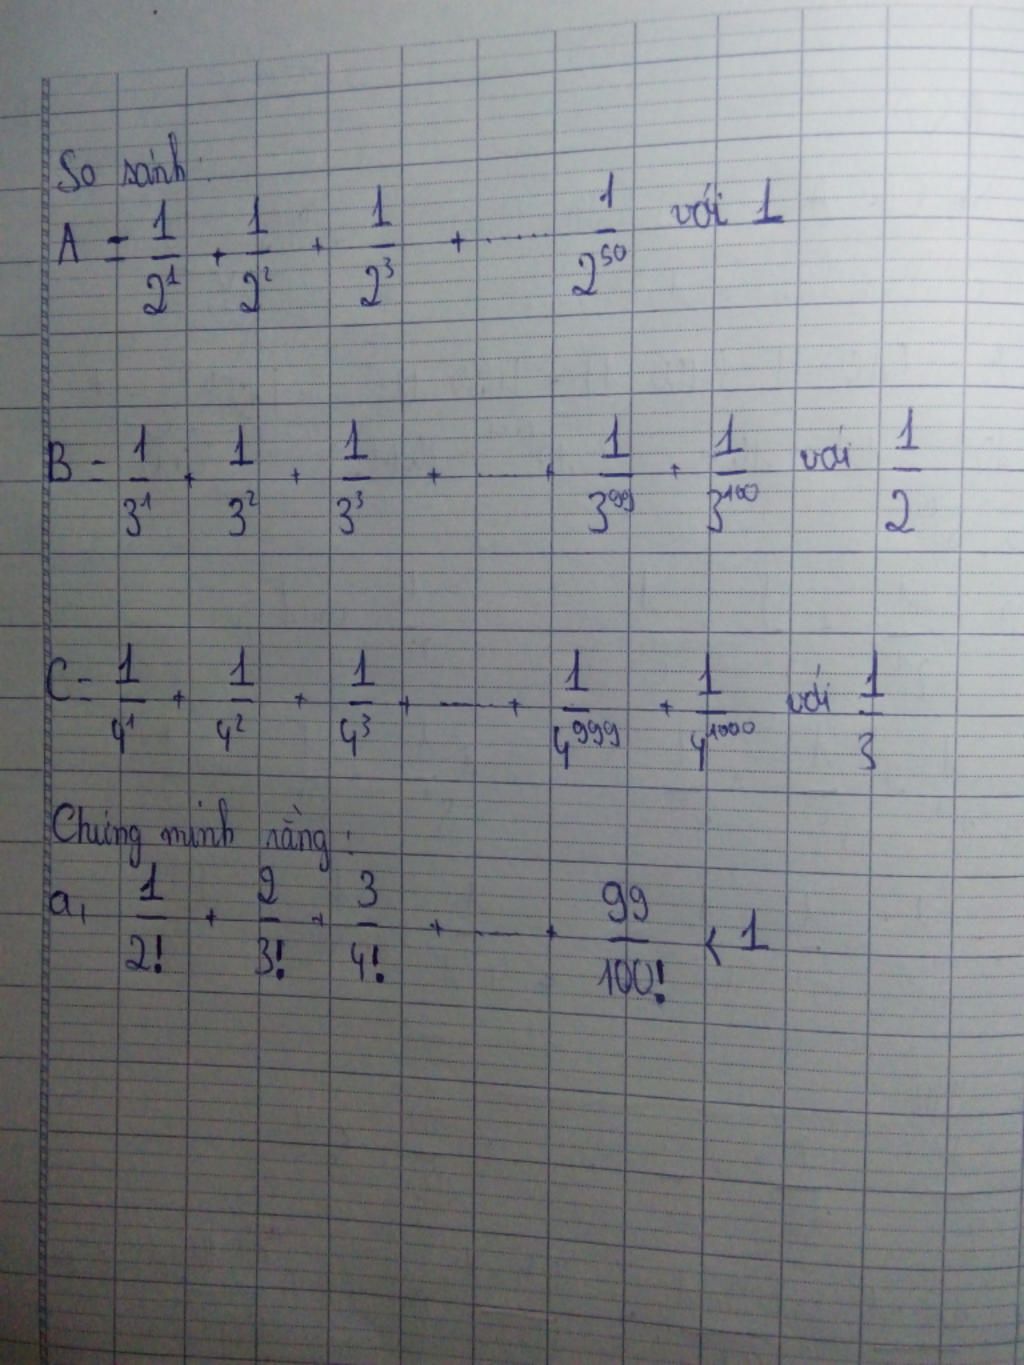 So sánh:
A = 1/2¹ + 1/2² + 1/2³ + ..... 1/2⁵⁰ với 1
B = 1/3¹ + 1/3² + 1/3³ + ..... + 1/3⁹⁹ + 1/3¹⁰⁰ với 1/2
C = 1/4¹ + 1/4² + 1/4³ + ..... + 1/4⁹⁹⁹ + 1/4¹⁰⁰⁰ với 1/3
Chứng minh rằng:
a, 1/2! + 2/3! + 3/4! + ..... + 99/100! < 1